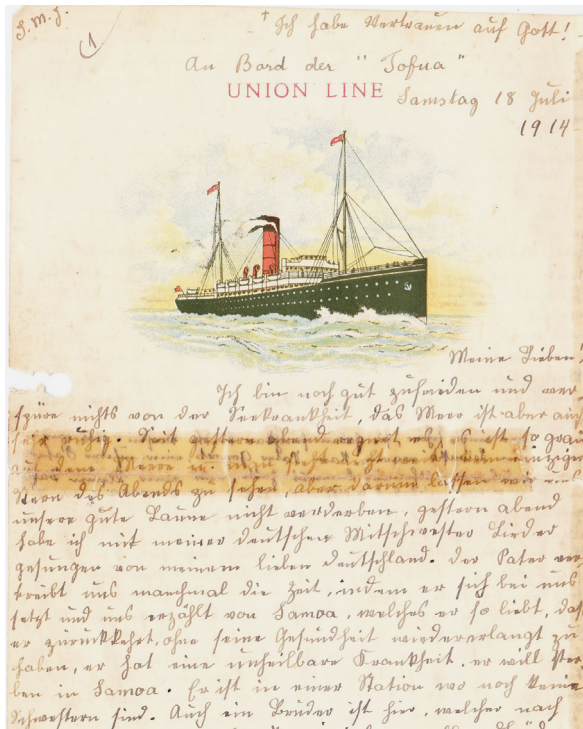 J. M. J.
(1
† Ich habe Vertrauen auf Gott!
An Bord der "Tofua"
UNION LINE
Samstag 18 Juli
1914
Meine Lieben!
Ich bin noch gut zufrieden und ver
spüre nichts von der Seekrankheit, das Meer ist aber auch
sehr ruhig. Seit gestern abend regnet es, es ist so grau
auf dem Meere
Stern des Abends zu sehen, aber darum lassen wir uns
unsere gute Laune nicht verderben, gestern abend
habe ich mit meiner deutschen Mitschwester Lieder
gesungen von meinem lieben Deutschland. Der Pater ver
treibt uns manchmal die Zeit, indem er sich bei uns
setzt und uns erzählt von Samoa, welches er so liebt, daß
er zurückkehrt, ohne seine Gesundheit wiedererlangt zu
haben, er hat eine unheilbare Krankheit, er will ster
ben in Samoa. Er ist in einer Station wo noch keine
Schwestern sind. Auch ein Bruder ist hier, welcher nach